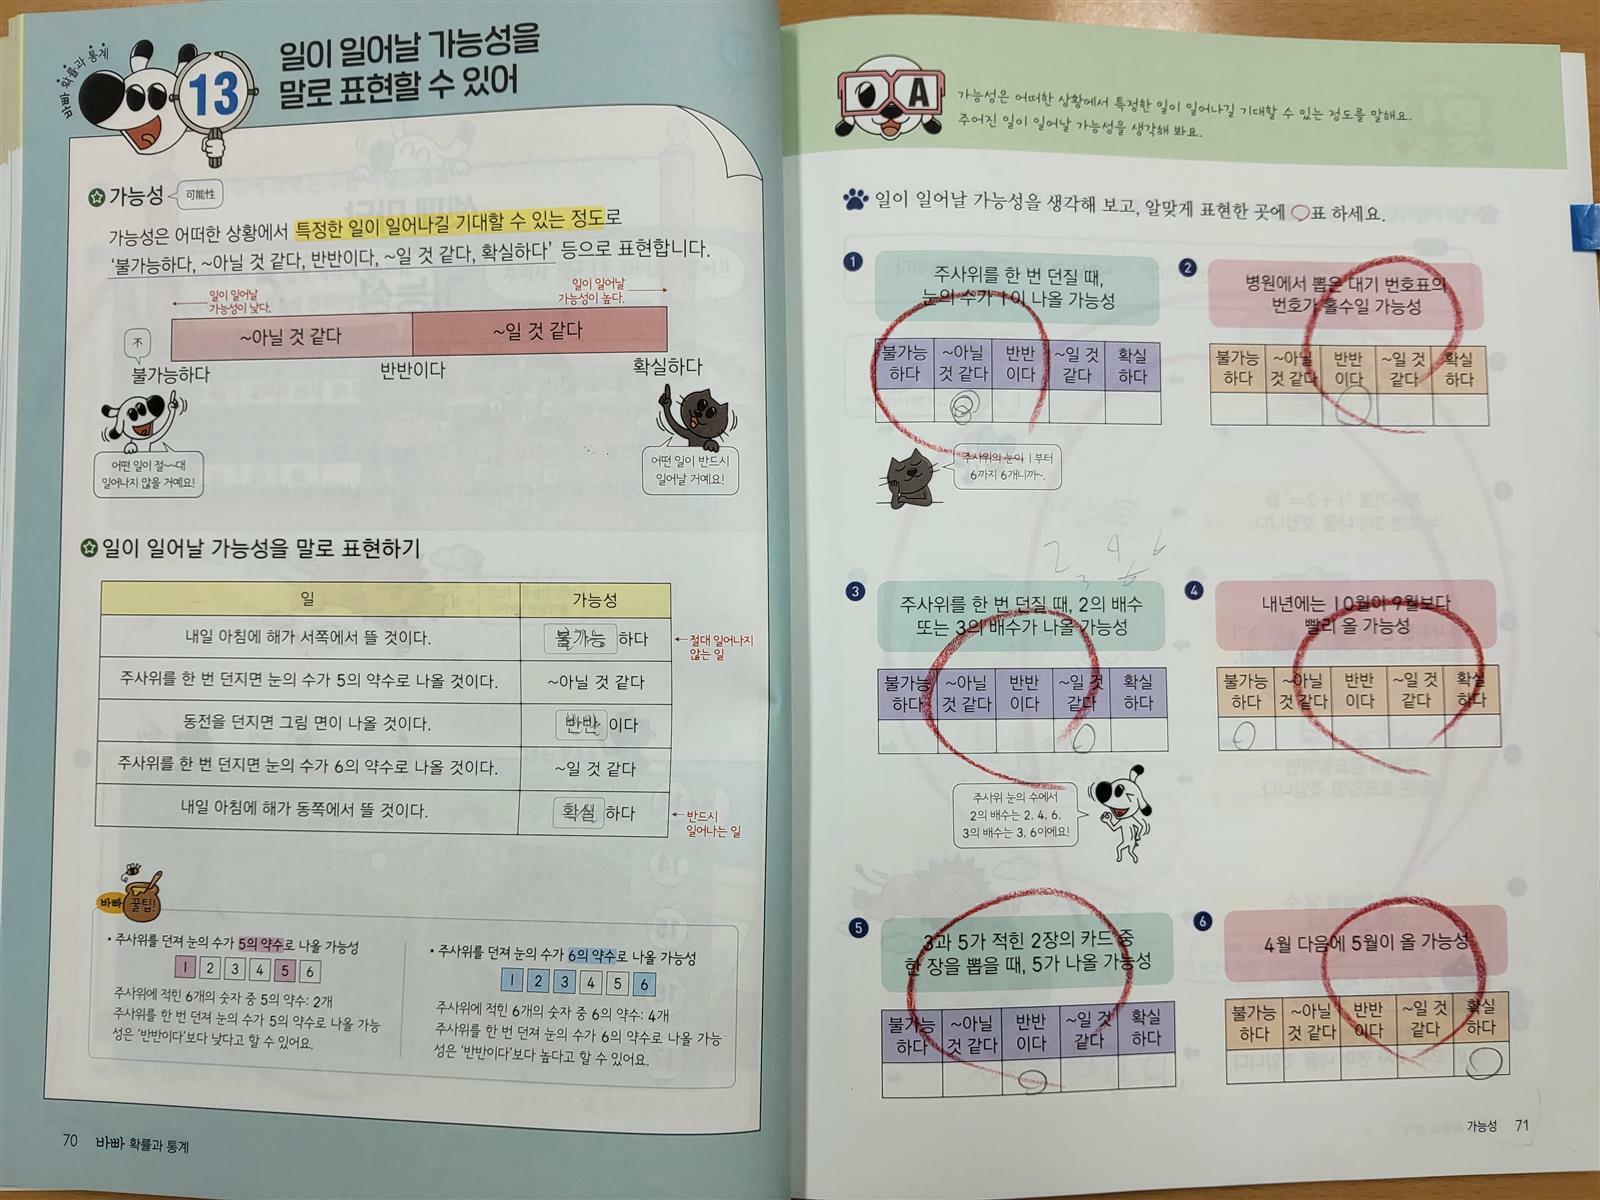 바빠 확률과 통계
13
일이 일어날 가능성을
말로 표현할 수 있어
가능성
可能性
가능성은 어떠한 상황에서 특정한 일이 일어나길 기대할 수 있는 정도로
‘불가능하다, ~아닐 것 같다, 반반이다, ~일 것 같다, 확실하다’ 등으로 표현합니다.
일이 일어날
가능성이 낮다.
일이 일어날
가능성이 높다.
~아닐 것 같다
~일 것 같다
不
불가능하다
반반이다
확실하다
어떤 일이 절~~대
일어나지 않을 거예요!
어떤 일이 반드시
일어날 거예요!
일이 일어날 가능성을 말로 표현하기
일 가능성
내일 아침에 해가 서쪽에서 뜰 것이다. 불가능 하다
절대 일어나지
않는 일
주사위를 한 번 던지면 눈의 수가 5의 약수로 나올 것이다. ~아닐 것 같다
동전을 던지면 그림 면이 나올 것이다. 반반 이다
주사위를 한 번 던지면 눈의 수가 6의 약수로 나올 것이다. ~일 것 같다
내일 아침에 해가 동쪽에서 뜰 것이다. 확실 하다
반드시
일어나는 일
바빠 꿀팁!
• 주사위를 던져 눈의 수가 5의 약수로 나올 가능성
1 2 3 4 5 6
주사위에 적힌 6개의 숫자 중 5의 약수: 2개
주사위를 한 번 던져 눈의 수가 5의 약수로 나올 가능
성은 ‘반반이다’보다 낮다고 할 수 있어요.
• 주사위를 던져 눈의 수가 6의 약수로 나올 가능성
1 2 3 4 5 6
주사위에 적힌 6개의 숫자 중 6의 약수: 4개
주사위를 한 번 던져 눈의 수가 6의 약수로 나올 가능
성은 ‘반반이다’보다 높다고 할 수 있어요.
70 바빠 확률과 통계
A
가능성은 어떠한 상황에서 특정한 일이 일어나길 기대할 수 있는 정도를 말해요.
주어진 일이 일어날 가능성을 생각해 봐요.
일이 일어날 가능성을 생각해 보고, 알맞게 표현한 곳에 ○표 하세요.
1
주사위를 한 번 던질 때,
눈의 수가 1이 나올 가능성
불가능 ~아닐 반반 ~일 것 확실
하다 것 같다 이다 같다 하다
주사위의 눈이 1부터
6까지 6개니까~.
2
병원에서 뽑은 대기 번호표의
번호가 홀수일 가능성
불가능 ~아닐 반반 ~일 것 확실
하다 것 같다 이다 같다 하다
2 3 4 6 6
3
주사위를 한 번 던질 때, 2의 배수
또는 3의 배수가 나올 가능성
불가능 ~아닐 반반 ~일 것 확실
하다 것 같다 이다 같다 하다
주사위 눈의 수에서
2의 배수는 2, 4, 6,
3의 배수는 3, 6이에요!
4
내년에는 10월이 9월보다
빨리 올 가능성
불가능 ~아닐 반반 ~일 것 확실
하다 것 같다 이다 같다 하다
5
3과 5가 적힌 2장의 카드 중
한 장을 뽑을 때, 5가 나올 가능성
불가능 ~아닐 반반 ~일 것 확실
하다 것 같다 이다 같다 하다
6
4월 다음에 5월이 올 가능성
불가능 ~아닐 반반 ~일 것 확실
하다 것 같다 이다 같다 하다
가능성 71